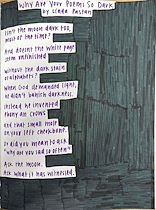 Why Are Your Poems So Dark
by Linda Pastan
Isn't the moon dark too,
most of the time?
And doesn't the white page
seem unfinished
without the dark stain
of alphabets?
When God demanded light,
he didn't banish darkness.
Instead he invented
ebony and crows
and that small mole
on your left cheekbone.
Or did you mean to ask
"Why are you sad so often?"
Ask the moon.
Ask what it has witnessed.